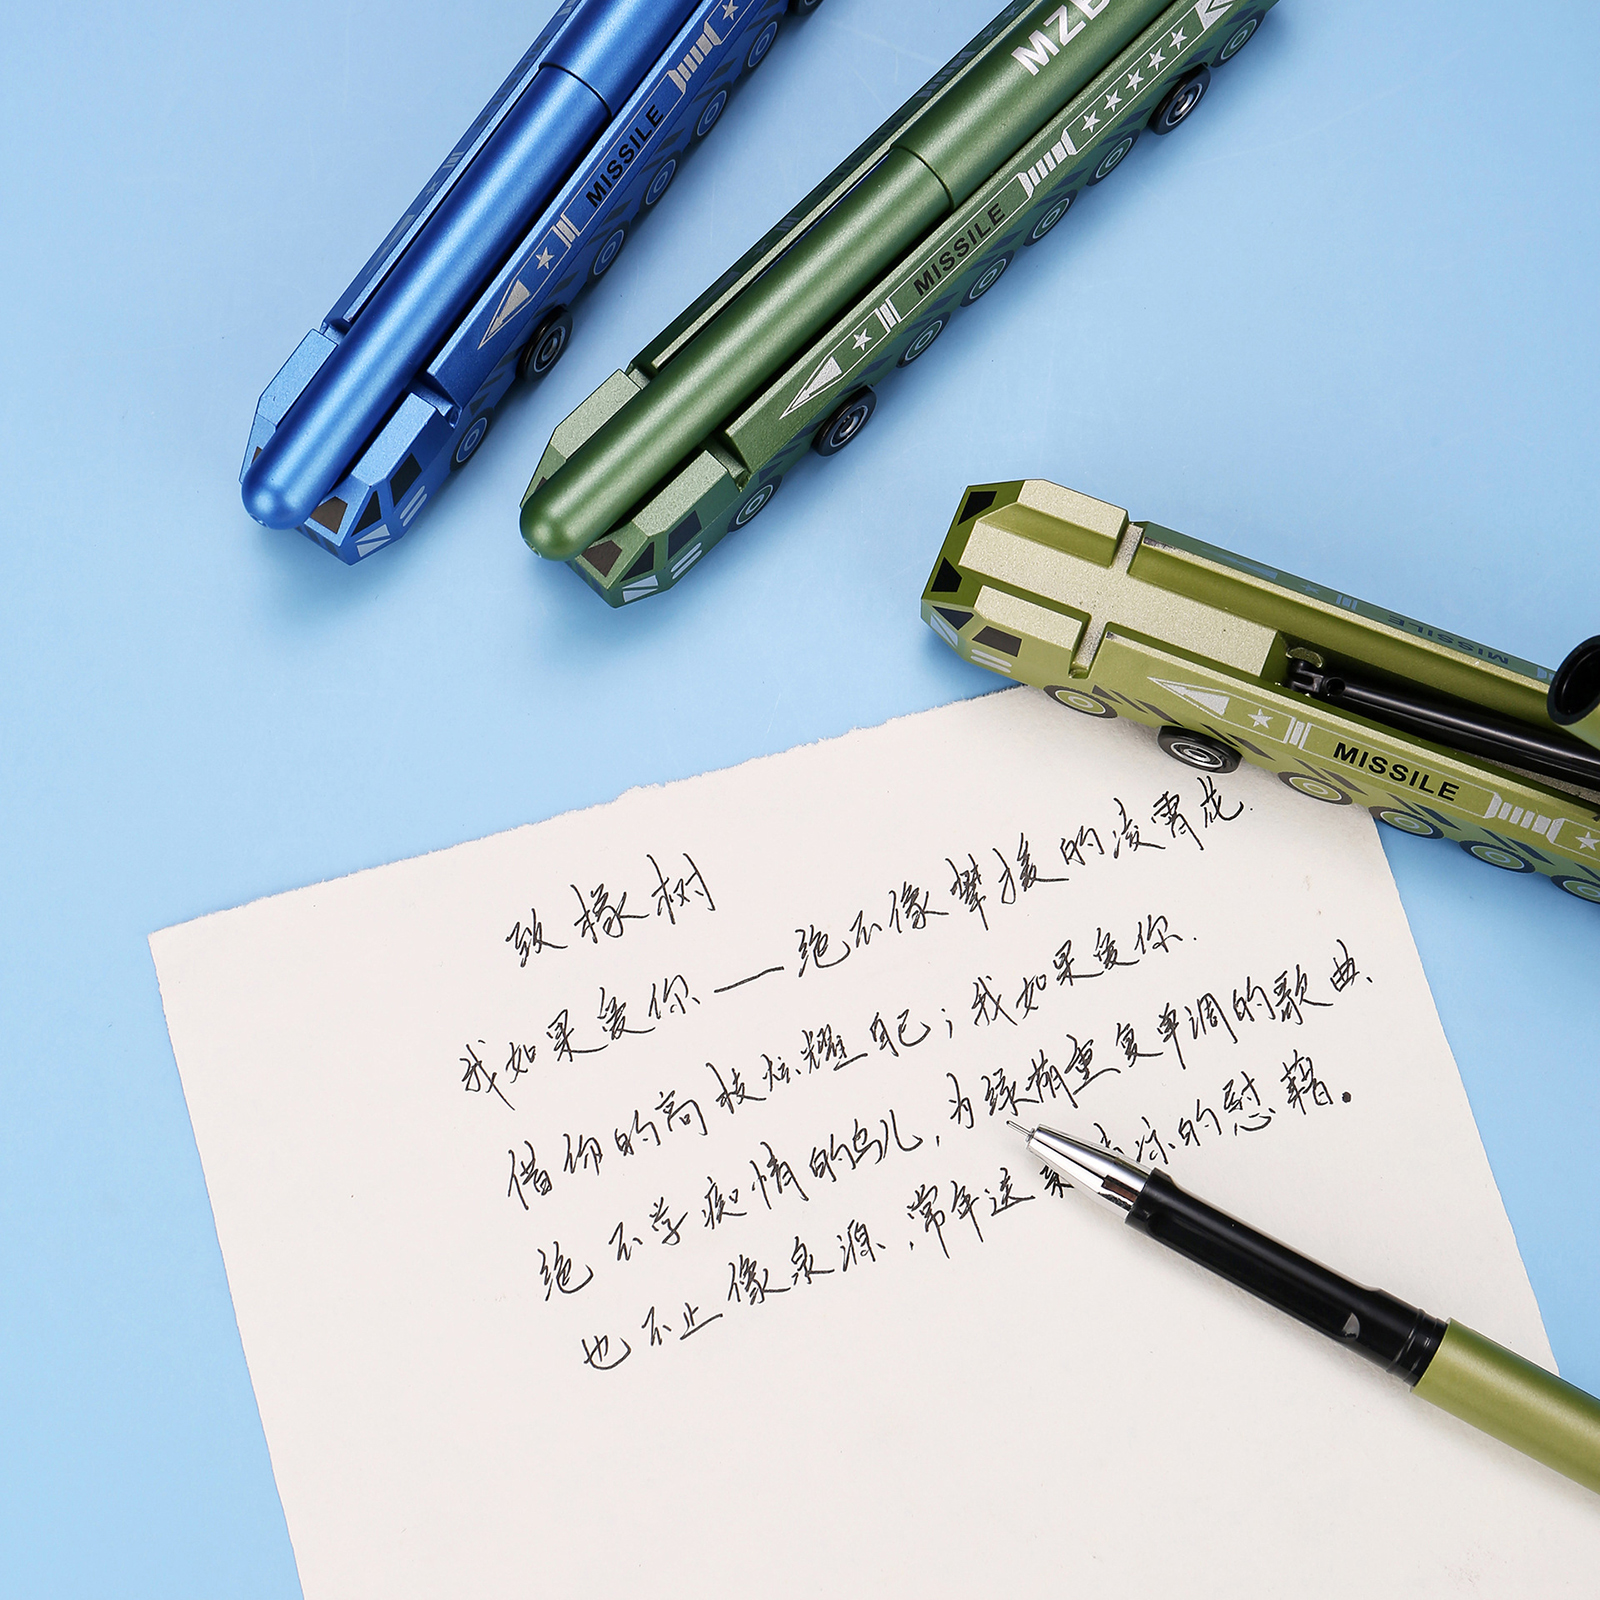 MISSILE
MISSILE
MISSILE
MISSILE
致橡树
我如果爱你——绝不像攀援的凌霄花.
借你的高枝炫耀自己;我如果爱你.
绝不学痴情的鸟儿,为绿荫重复单调的歌曲、
也不止像泉源,常年送来清凉的慰藉。